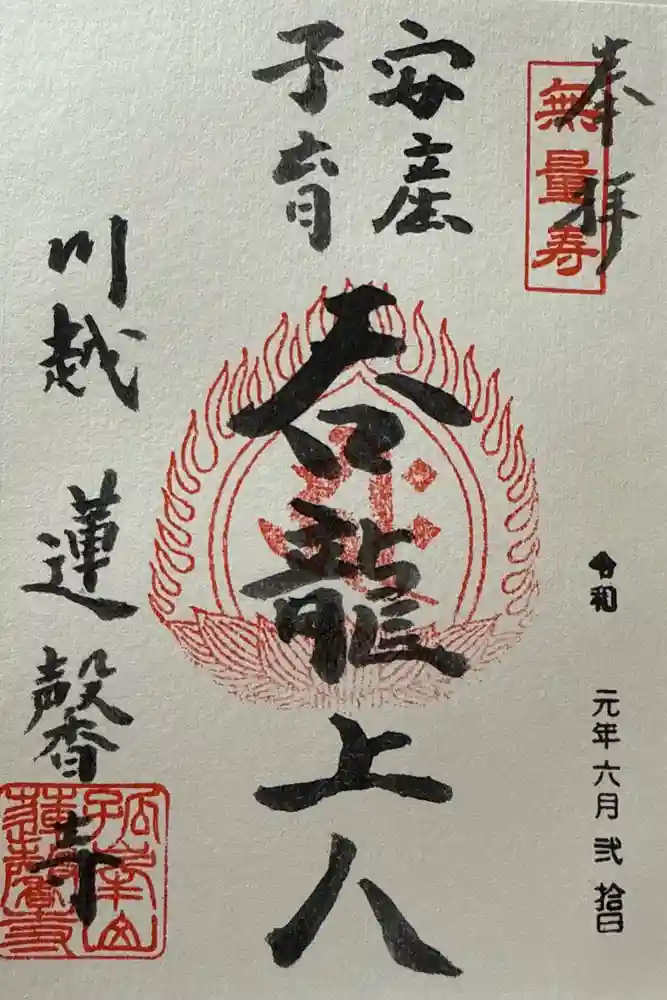 奉拝
無量寿
安産
子育
呑龍上人
令和 元年六月弐拾日
川越 蓮馨寺
孤峯山
蓮馨寺